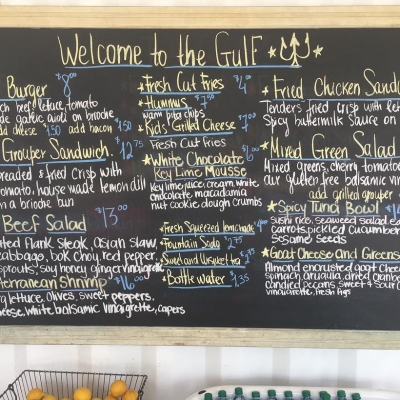 Welcome to the Gulf
Burger $8.00
beef, lettuce, tomato
garlic aioli on brioche
add cheese 1.50 add bacon $1.50
Grouper Sandwich $12.75
breaded & fried crisp with
tomato, house made lemon dill
on a brioche bun
Beef Salad $13.00
flank steak, asian slaw,
cabbage, bok choy, red pepper,
sprouts, soy honey ginger vinaigrette
Mediterranean Shrimp $16.00
lettuce, olives, sweet peppers,
cheese, white balsamic vinaigrette, capers
Fresh Cut Fries $4.00
Hummus $7.50
warm pita chips
Kids Grilled Cheese $7.00
Fresh Cut Fries
White Chocolate
Key Lime Mousse
key lime juice, cream, white
chocolate, macadamia
nut cookie dough crumbs
Fresh Squeezed lemonade
Fountain Soda 2.75
Sweet and Unsweet tea
Bottle water $1.35
Fried Chicken Sand
Tenders fried crisp with
spicy buttermilk sauce on
Mixed Green Salad
Mixed greens, cherry tomato
our gluten free balsamic
add grilled grouper
Spicy Tuna Bowl
sushi rice, seaweed salad,
carrots, pickled cucumber
sesame seeds
Goat Cheese and Greens
Almond encrusted goat
spinach, arugula, dried
candied pecans, sweet & sour
vinaigrette, fresh figs